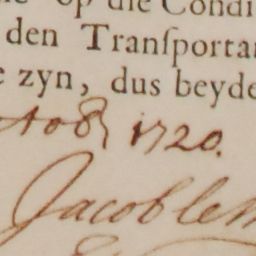 op die Condi
den Tranſporta
zyn, dus beyde
1720.
Jacob